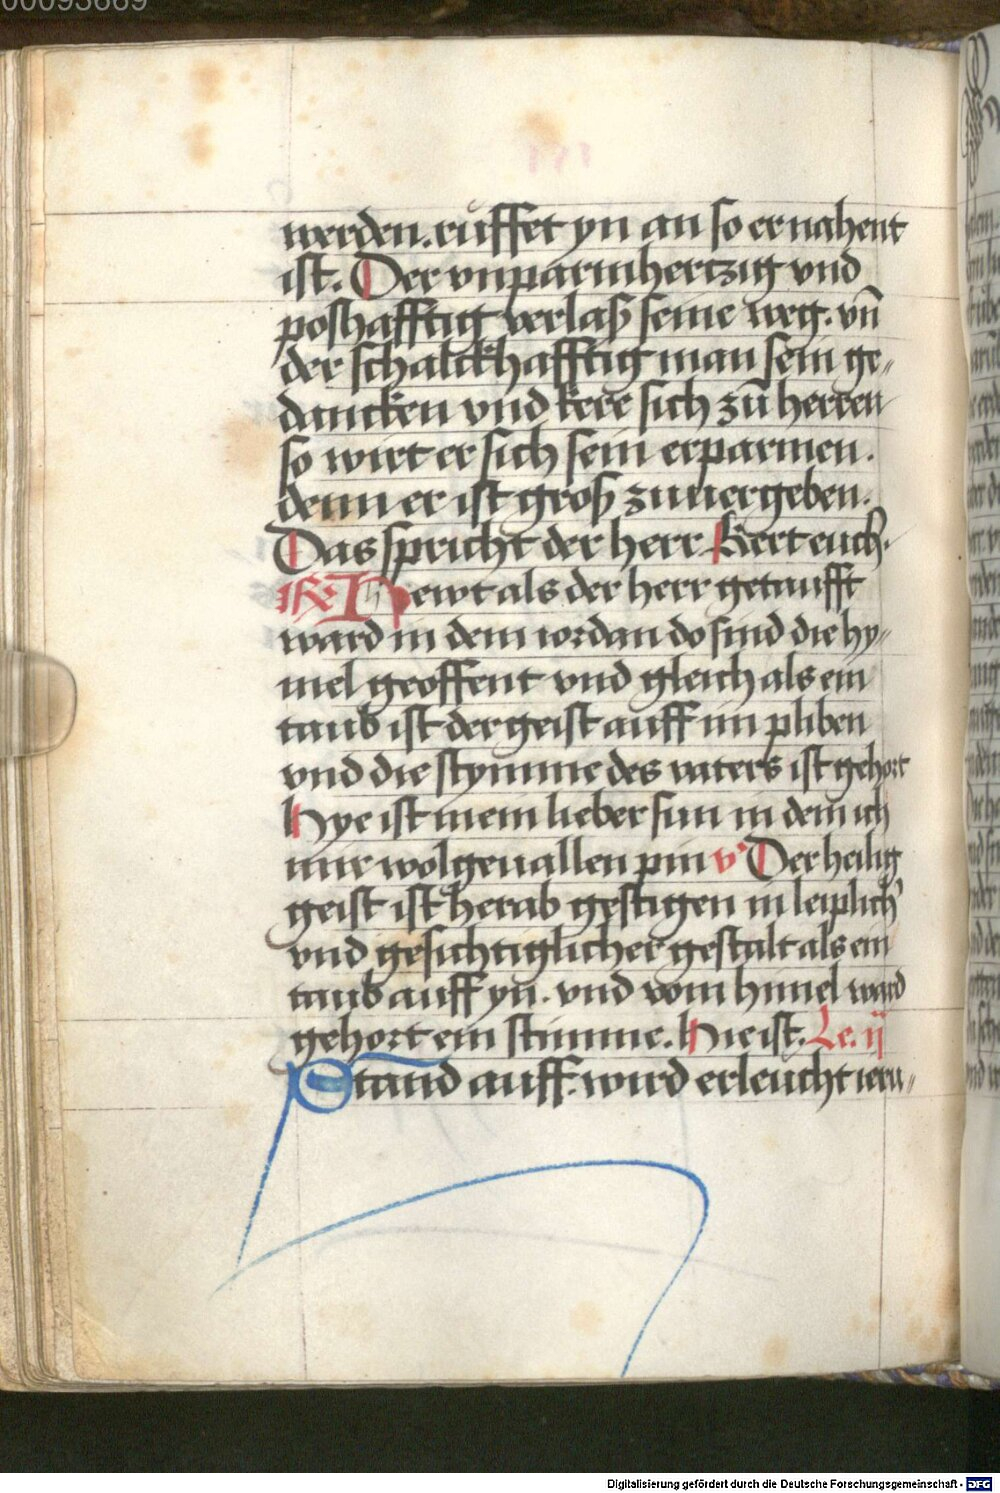 00093669
werden. ruffet yn an so er nahent
ist. Der vnparmhertzig vnd
poshafftig verlaß seine weg. vn̄
der schalckhafftig man sein ge〃
dancken vnd kere sich zū herren
so wirt er sich sein erparmen.
denn er ist groß zuuergeben.
Das spricht der herr Kert euch.
Hewt als der herr getaufft
ward in dem iordan do sind die hy〃
mel geoffent vnd gleich als ein
taub ist der geist auff im pliben
vnd die stymme des vaters ist gehort
Hye ist mein lieber sun in dem ich
mir wolgeuallen pin v̉ Der heilig
geist ist herab gestigen in leiplich̉
vnd gesichtiglicher gestalt als ein
taub auff yn. vnd vom himel ward
gehort ein stimme. Hie ist. Le. ij
Stand auff. wird erleucht ieru〃
Digitalisierung gefördert durch die Deutsche Forschungsgemeinschaft - DFG